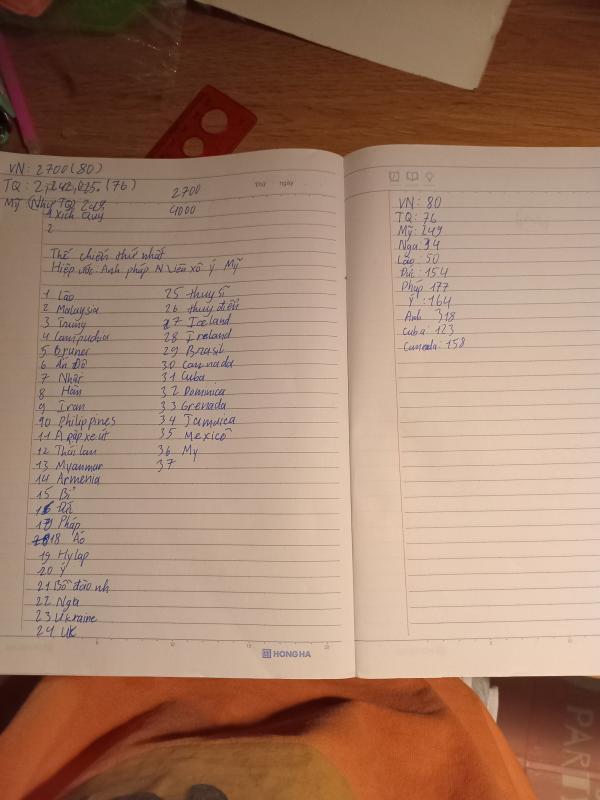 VN: 2700 (80)
TQ: 2,242,025. (76)
Mỹ Nhịp TQ 248
2700
4000
Thứ ngày
1 Xích Quỷ
2
Thế chiến thứ nhất
Hiệp ước Anh pháp N Liên xô ý Mỹ
1 Lào
2 Malaysia
3 Trung
4 Campuchia
5 Bruner
6 Ấn Độ
7 Nhật
8 Hàn
9 Iran
10 Philippines
11 Ả rập xê út
12 Thái lan
13 Myanmar
14 Armenia
15 Bỉ
16
17 Pháp
18 Áo
19 Hy lạp
20 Ý
21 Bồ đào nh
22 Nga
23 Ukraine
24 UK
25 thuỵ sĩ
26 thuỵ điển
27 Iceland
28 Ireland
29 Brasil
30 Cannada
31 Cuba
32 Dominica
33 Grenada
34 Jamaica
35 Mexicô
36 My
37
HONG HA
VN: 80
TQ: 76
Mỹ: 249
Nga: 34
Lào: 50
Đức: 154
Pháp 177
Ý: 164
Anh 318
Cuba: 123
Canada: 158
PART